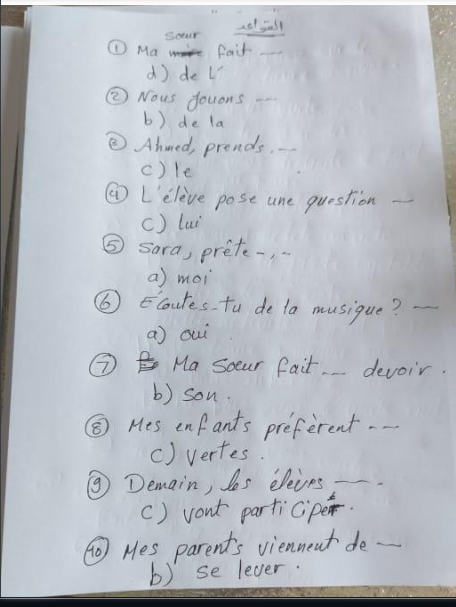 القواعد
① Ma soeur fait ---
d) de L'
② Nous jouons ---
b) de la
③ Ahmed, prends.--
c) le
④ L'élève pose une question --
c) lui
⑤ Sara, prête-,-
a) moi
⑥ Écoutes-tu de la musique? --
a) oui
⑦ Ma soeur fait --- devoir.
b) son.
⑧ Mes enfants préfèrent ---
c) vertes.
⑨ Demain, les élèves ---.
c) vont participer.
⑩ Mes parents viennent de --
b) se lever.